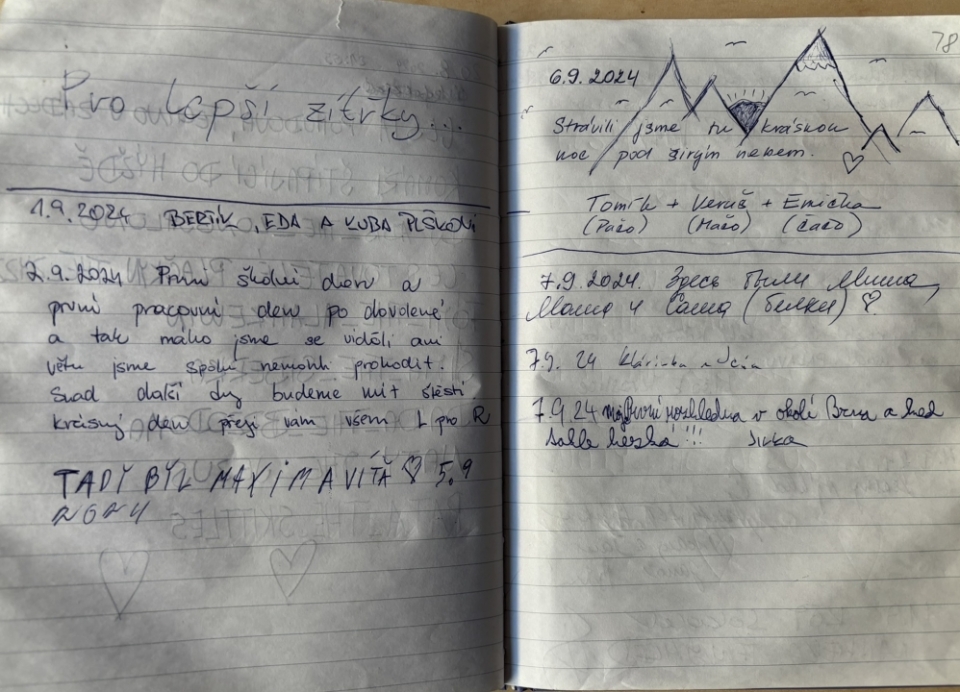 Pro lepší zítřky...
1.9.2024 BERTÍK, EDA A KUBA PLŠKOVI
2.9.2024 První školní den a
první pracovní den po dovolené
a tak málo jsme se viděli ani
větu jsme spolu nemohli prohodit.
Snad další dny budeme mít štěstí.
krásný den přeji vám všem L pro R
TADY BYL MAXIM A VÍŤA ♡ 5.9
2024
78
6.9.2024
Strávili jsme tu krásnou
noc pod širým nebem.
Tomík + Veruš + Emička
(Paťo) (Maťo) (Čaťo)
7.9.2024. Здесь были Миша,
Маша и Саша (белки) ♡
7.9. 24 Klárinka
7.9.24 má První rozhledna v okolí Brna a hed
takle hezká !!!